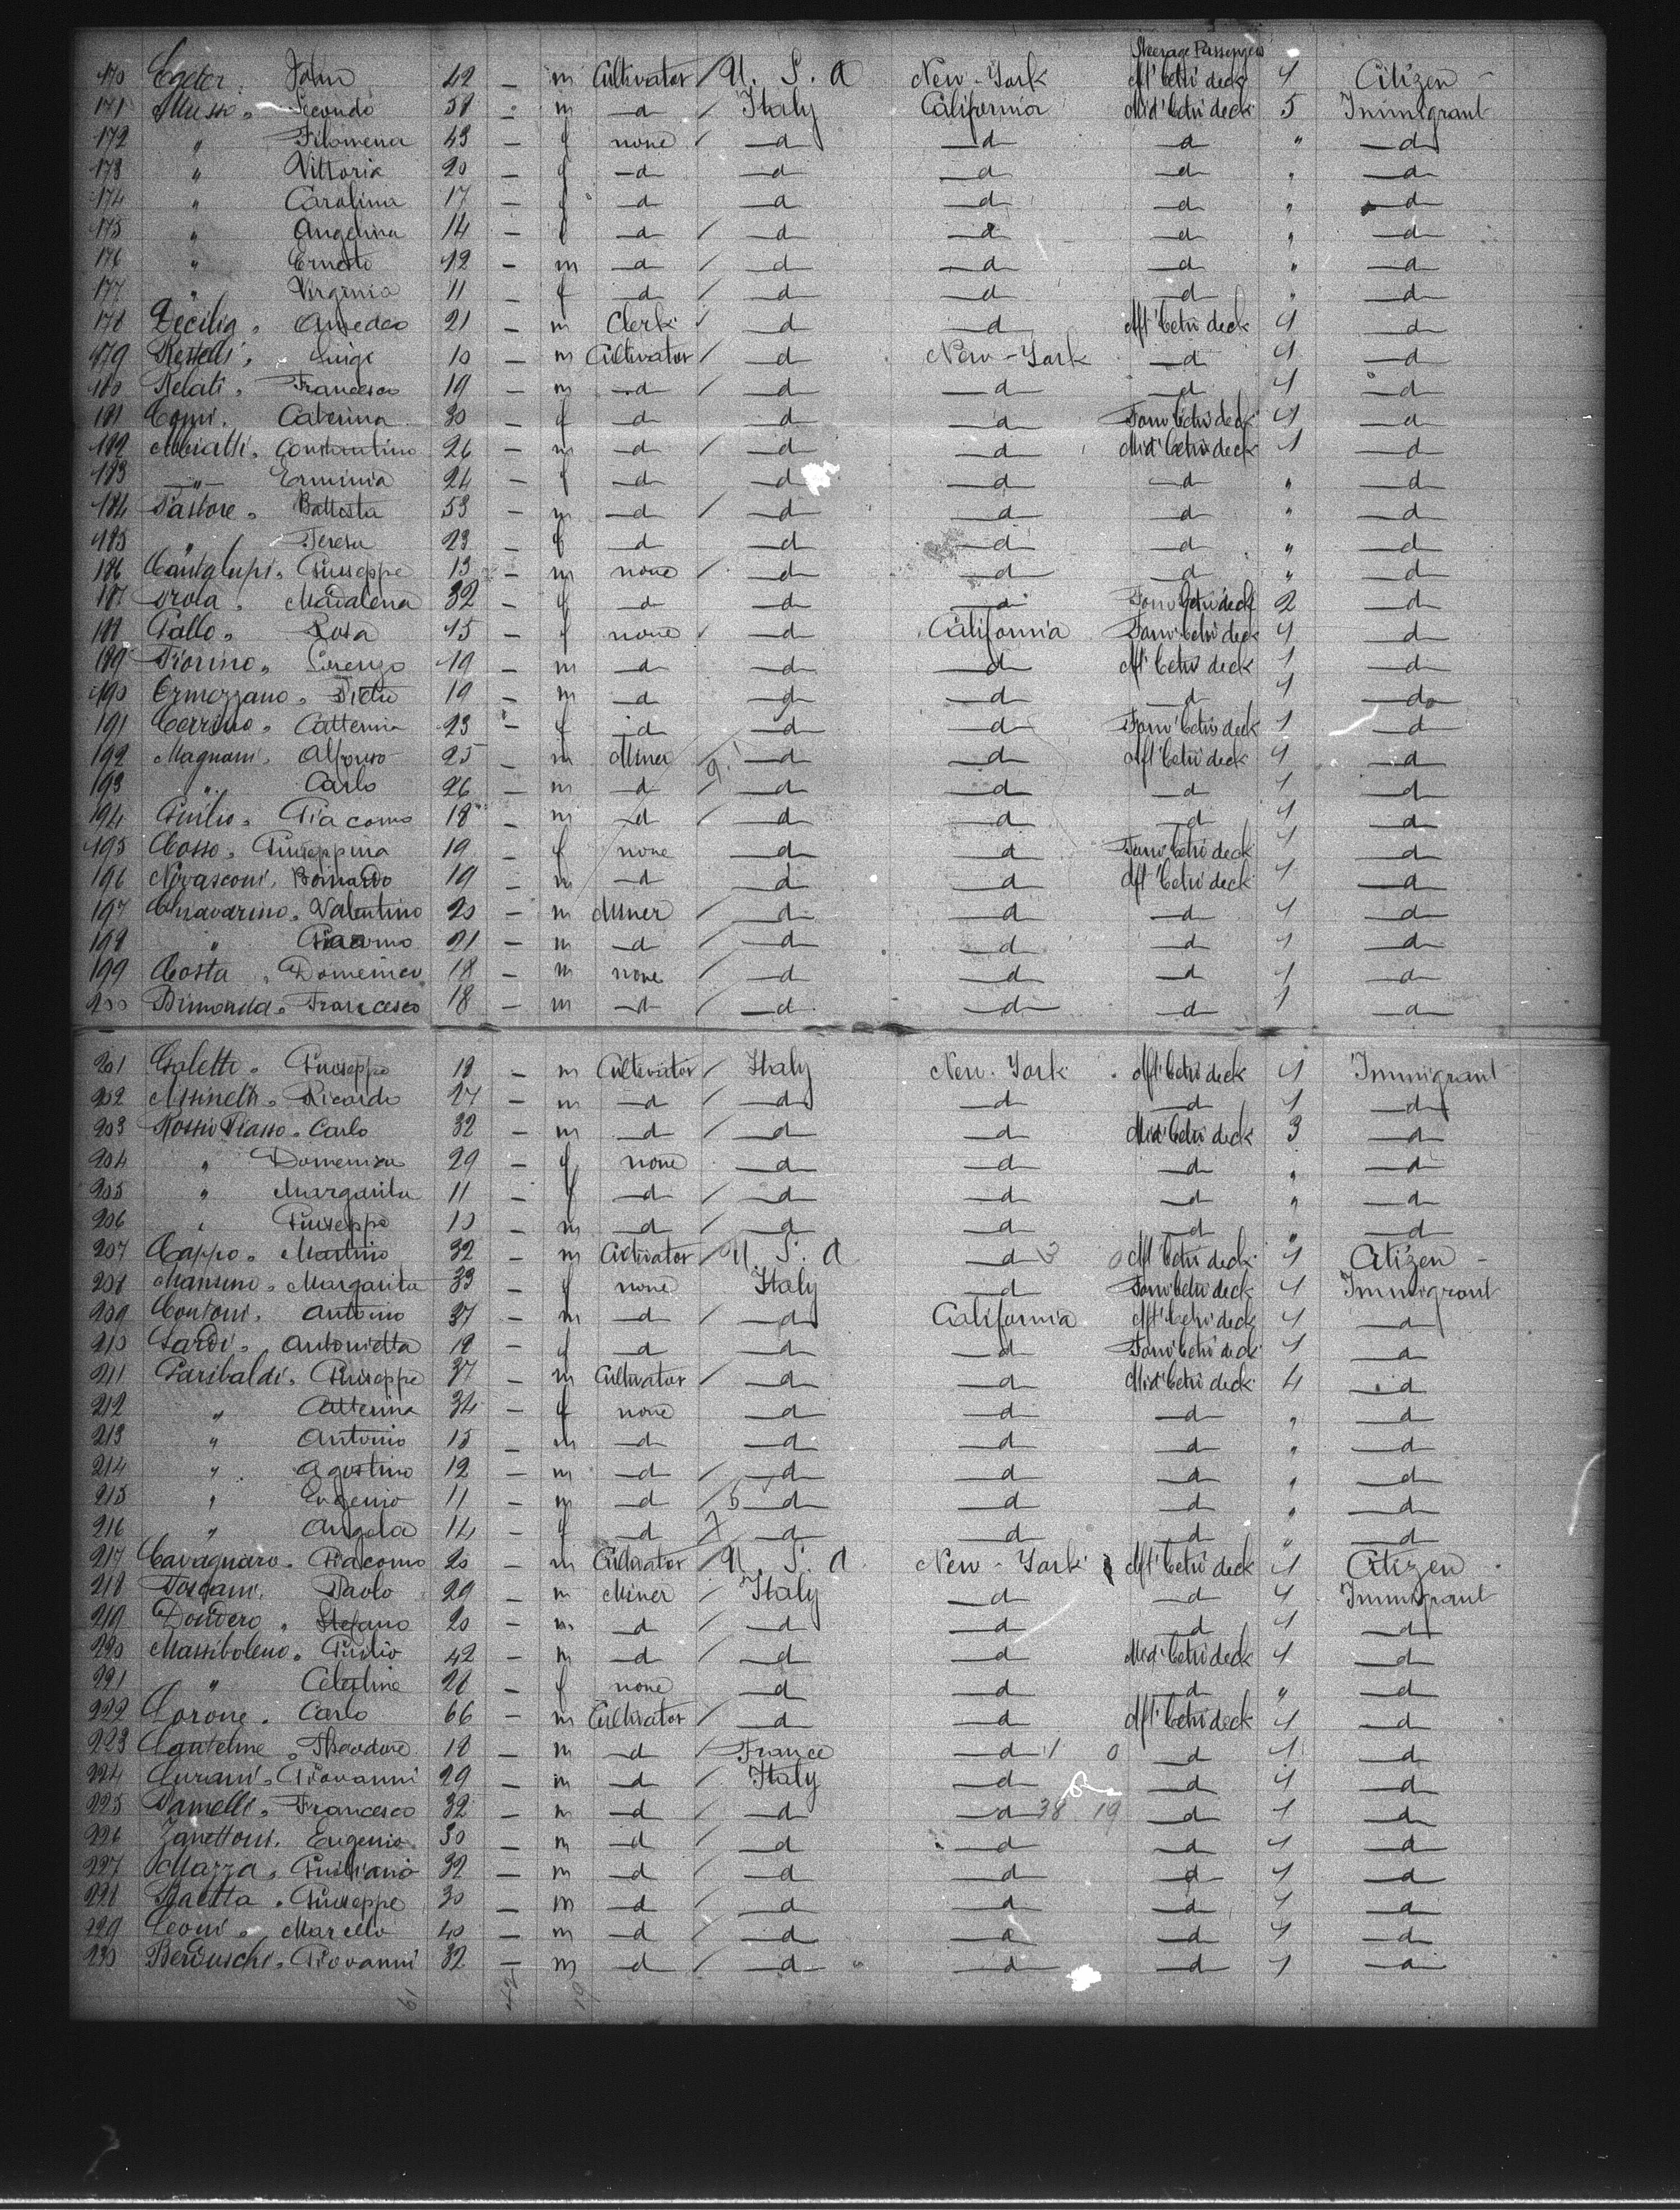 Steerage Passengers
170 Egeter John 42 - m Cultivator / U. S. A New-York Aft' betw deck 1 Citizen -
171 Musso „ Secondo 58 - m -d / Italy California Mid' betw deck 5 Immigrant
172 „ Filomena 43 - f none / -d -d -d „ -d
173 „ Vittoria 20 - f -d -d -d -d „ -d
174 „ Carolina 17 - f -d -d -d -d „ -d
175 „ Angelina 14 - f -d / -d -d -d „ -d
176 „ Ernesto 12 - m -d / -d -d -d „ -d
177 „ Virginia 11 - f -d / -d -d -d „ -d
178 Decilia „ Amedeo 21 - m Clerk / -d -d Aft' betw deck 1 -d
179 Restelli „ Luigi - m Cultivator / -d New-York -d 1 -d
180 Relati „ Francesco 19 - m -d / -d -d -d 1 -d
181 Caterina 30 - f -d -d -d Forw' betw deck 1 -d
182 Constantino 26 - m -d / -d -d Mid' betw deck 1 -d
183 -„- Erminia 24 - f -d -d -d -d „ -d
184 Pastore „ Battista 53 - m -d / -d -d -d „ -d
185 „ Teresa 23 - f -d -d -d -d „ -d
186 Cantalupi „ Giuseppe 13 - m none / -d -d -d „ -d
187 Madalena 32 - f -d -d -d Forw' betw deck 2 -d
188 Gallo „ Rosa 15 - f none / -d California Forw' betw deck 1 -d
189 Fiorino „ Lorenzo 19 - m -d -d -d Aft' betw deck 1 -d
190 Ermezzano „ Pietro 19 - m -d -d -d -d 1 -d
191 Cerrino „ Catterina 23 - f -d -d -d Forw' betw deck 1 -d
192 Magnani „ Alfonso 25 - m Miner / -d -d Aft' betw deck 1 -d
193 „ Carlo 26 - m -d / -d -d -d 1 -d
194 Giulio „ Giacomo 18 - m -d / -d -d -d 1 -d
195 Cosso „ Giuseppina 19 - f none -d -d Forw' betw deck 1 -d
196 Novasconi „ Bernardo 19 - m -d -d -d Aft' betw deck 1 -d
197 Chiavarino „ Valentino 20 - m Miner / -d -d -d 1 -d
198 „ Giacomo 21 - m -d / -d -d -d 1 -d
199 Costa „ Domenico 18 - m none / -d -d -d 1 -d
200 Bimonda „ Francesco 18 - m -d / -d -d -d 1 -d
201 Galetti „ Giuseppe 18 - m Cultivator / Italy New-York Aft' betw deck 1 Immigrant
202 Assinelli „ Ricardo 27 - m -d / -d -d -d 1 -d
203 Rossio Piasso „ Carlo 32 - m -d / -d -d Mid' betw deck 3 -d
204 „ Domenica 29 - f none -d -d -d „ -d
205 „ Margarita 11 - f -d / -d -d -d „ -d
206 „ Giuseppe 10 - m -d / -d -d -d „ -d
207 Cappo „ Martino 32 - m Cultivator / U. S. A -d 3 0 Aft' betw deck 1 Citizen -
208 Mansino „ Margarita 33 - f none Italy -d Forw' betw deck 1 Immigrant
209 Contoni „ Antonio 37 - m -d / -d California Aft' betw deck 1 -d
210 Sardi „ Antonietta 18 - f -d -d -d Forw' betw deck 1 -d
211 Garibaldi „ Giuseppe 37 - m Cultivator / -d -d Mid' betw deck 4 -d
212 „ Catterina 34 - f none -d -d -d „ -d
213 „ Antonio 15 - m -d -d -d -d „ -d
214 „ Agostino 12 - m -d / -d -d -d „ -d
215 „ Eugenio 11 - m -d / 5 -d -d -d „ -d
216 „ Angela - f -d 7 -d -d -d „ -d
217 Cavagnaro „ Giacomo 20 - m Cultivator / U. S. A New-York Aft' betw deck 1 Citizen -
218 Toscani „ Paolo 29 - m Miner / Italy -d -d 1 Immigrant
219 Dondero „ Stefano 20 - m -d / -d -d -d 1 -d
220 Massiboleno „ Giulio 42 - m -d / -d -d Mid' betw deck 1 -d
221 „ Celestine 26 - f none -d -d -d „ -d
222 Lorone „ Carlo 66 - m Cultivator / -d -d Aft' betw deck 1 -d
223 Canteline „ Theodore 18 - m -d / France -d 1 0 -d 1 -d
224 Curani „ Giovanni 29 - m -d / Italy -d -d 1 -d
225 Francesco 32 - m -d / -d -d 38 19 -d 1 -d
226 Zanettoni „ Eugenio 30 - m -d / -d -d -d 1 -d
227 Mazza „ Giuliano 32 - m -d / -d -d -d 1 -d
228 Giuseppe 30 - m -d / -d -d -d 1 -d
229 Leoni „ Marcello 40 - m -d / -d -d -d 1 -d
230 Berduschi „ Giovanni 32 - m -d / -d -d -d 1 -d
61 42 19